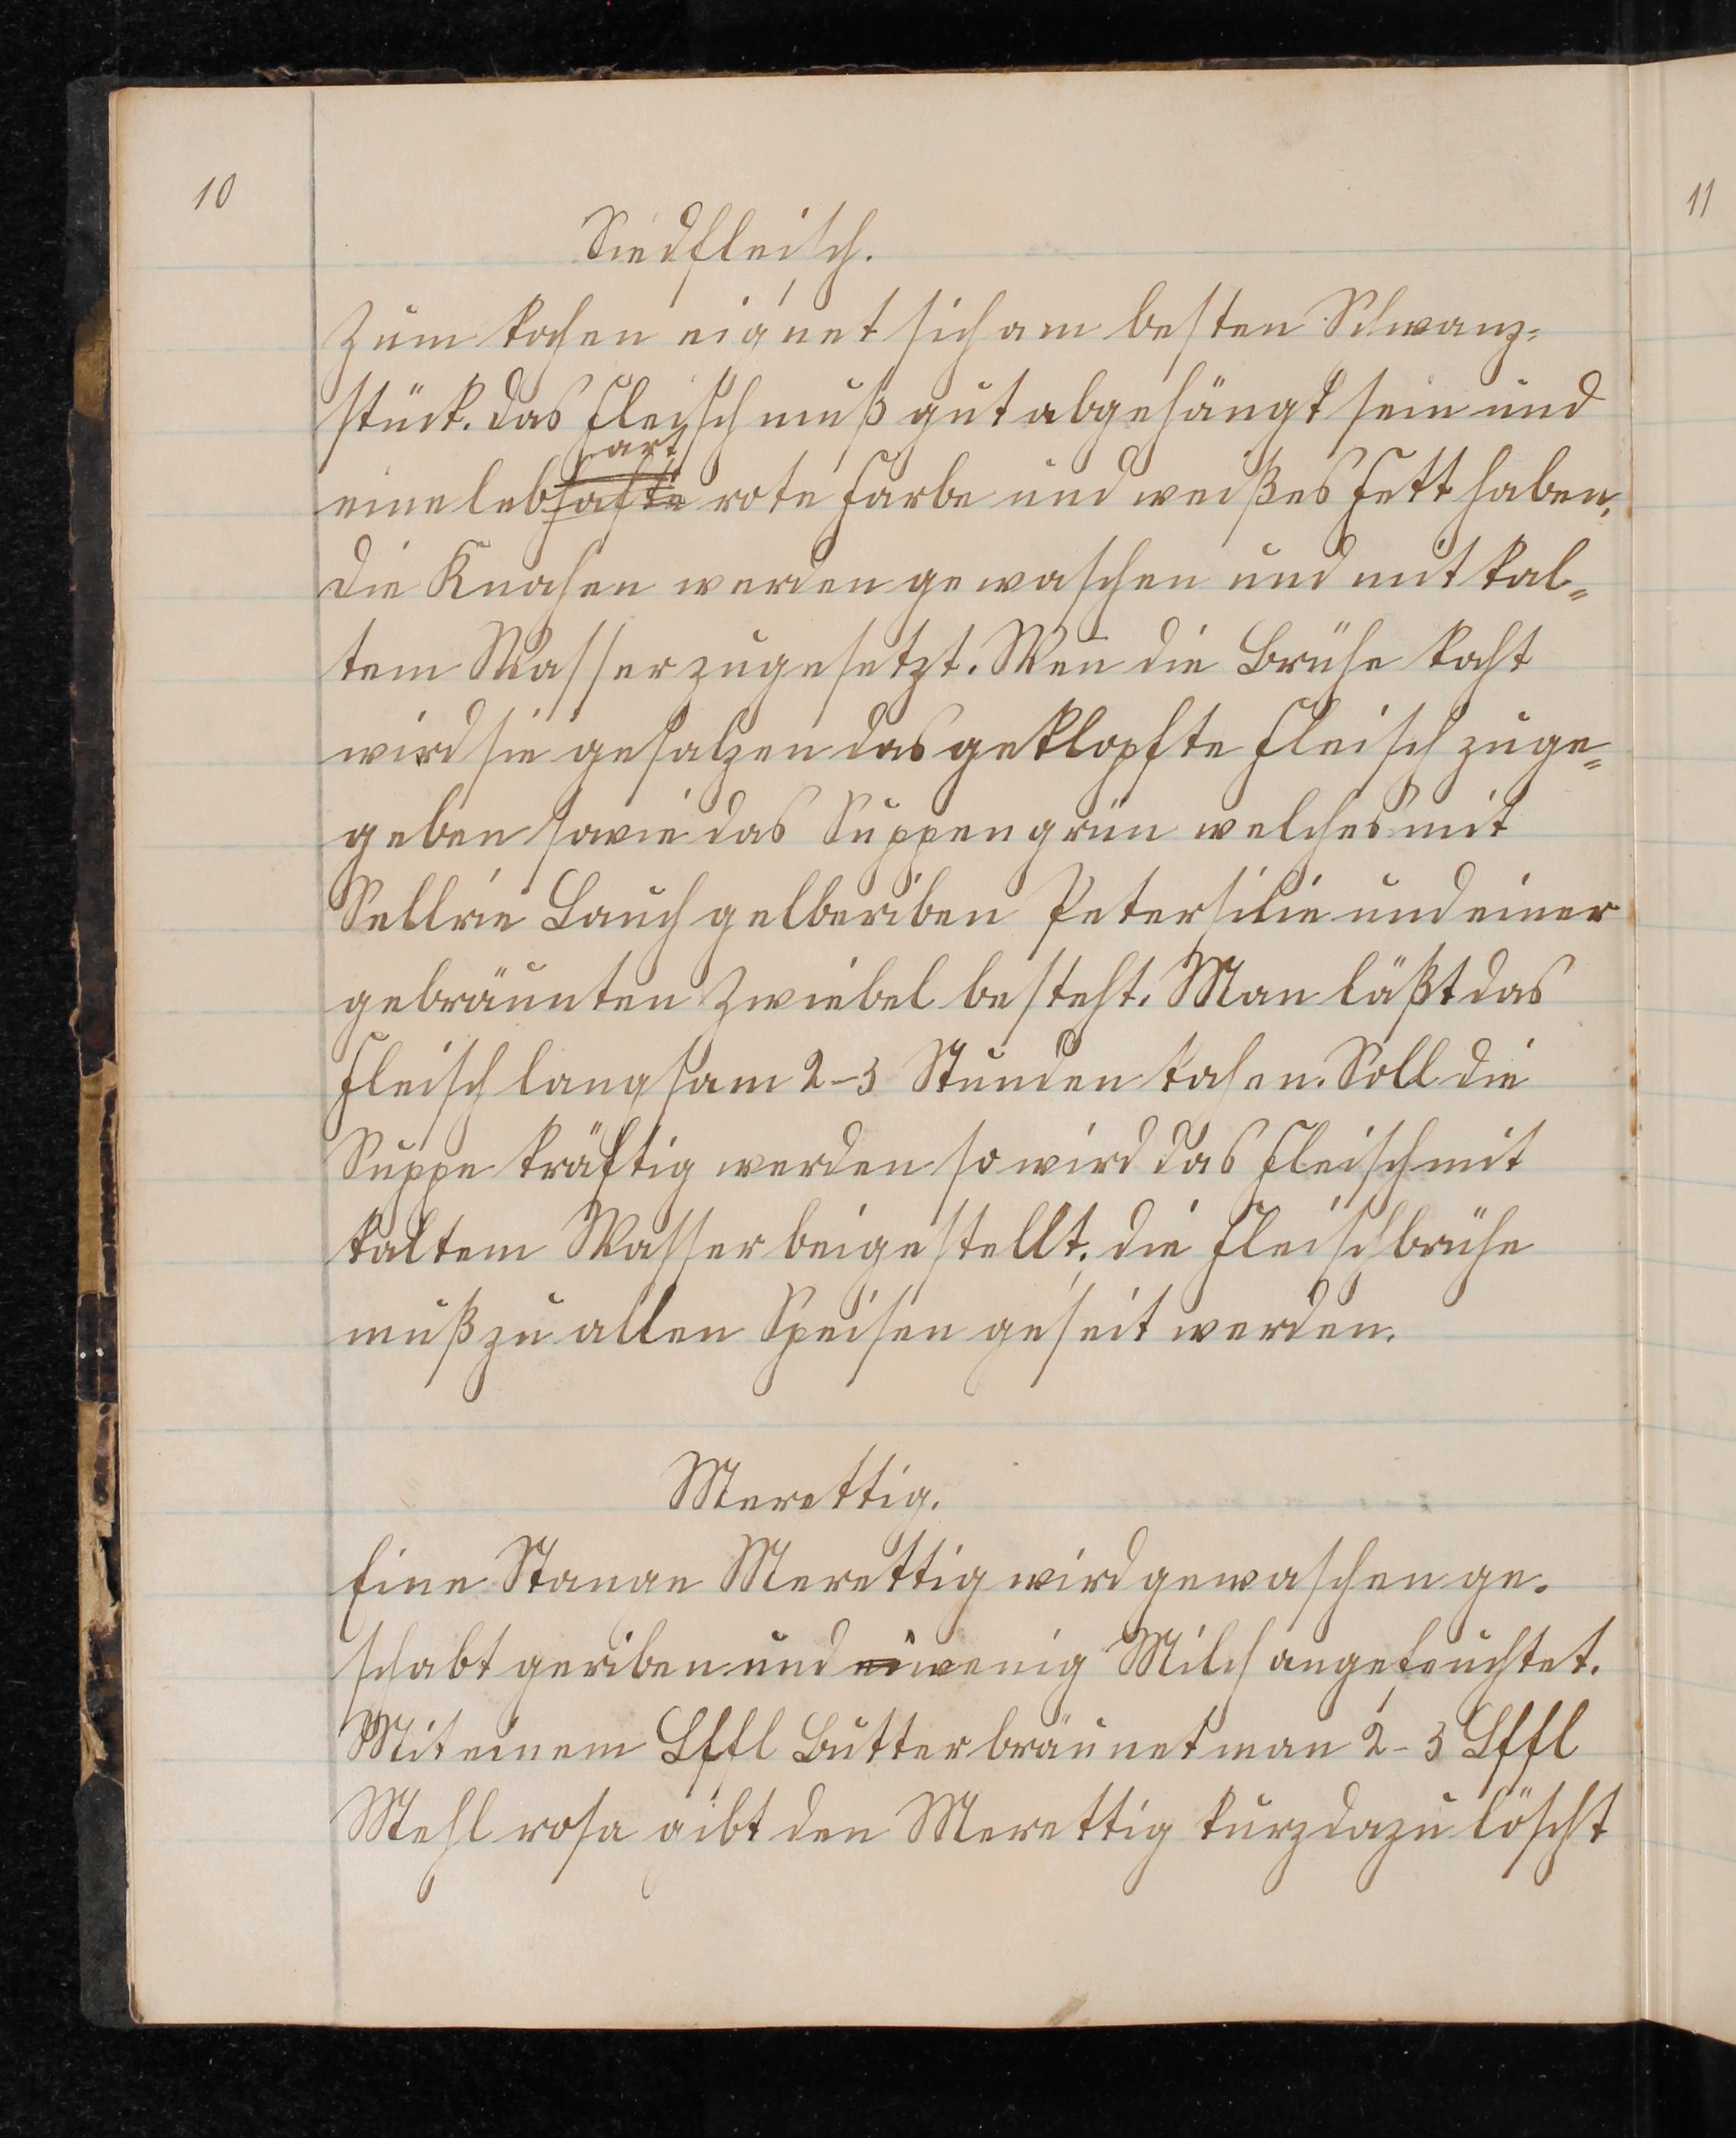 10
11
Siedfleisch.
Zum kochen eignet sich am besten Schwanz-
stück. das Fleisch muß gut abgehängt sein und
art
eine lebhafte rote Farbe und weißes Fett haben.
die Knochen werden gewaschen und mit kal=
tem Wasser zugesetzt. Wen̄ die Brühe kocht
wird sie gesalzen das geklopfte Fleisch zuge=
geben sowie das Suppengrün welches mit
Sellrie Lauch gelberiben Petersilie und einer
gebräunten Zwiebel besteht. Man läßt das
Fleisch langsam 2-3 Stunden kochen. Soll die
Suppe kräftig werden so wird das Fleisch mit
kaltem Wasser beigestellt. die Fleischbrühe
muß zu allen Speisen geseit werden.
Merettig.
Eine Stange Merettig wird gewaschen ge-
schabt geriben und ei wenig Milch angefeuchtet.
Mit einem Lffl Butter bräunet man 2-3 Lffl
Mehl rosa gibt den Merettig kurz dazu löscht